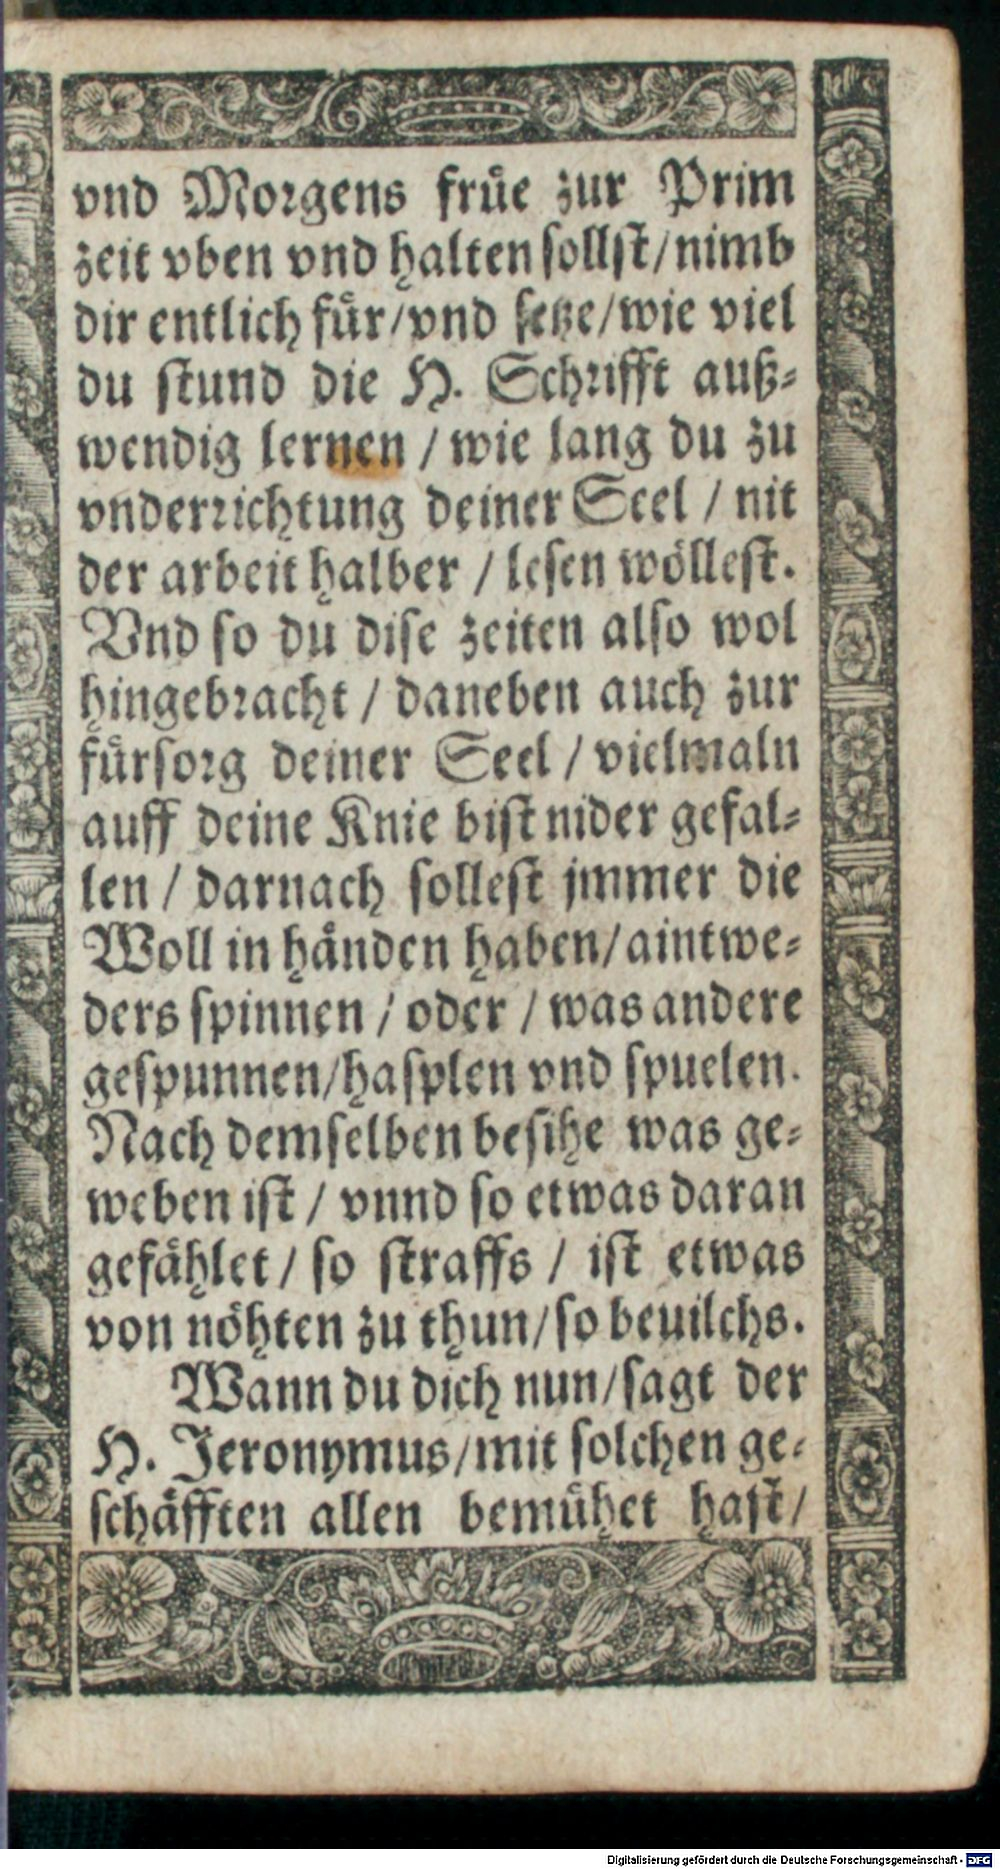 vnd Morgens frůe zur Prim
zeit vben vnd halten sollst/nimb
dir entlich fůr/vnd setze/wie viel
du stund die H. Schrifft auß-
wendig lernen / wie lang du zu
vnderrichtung deiner Seel / nit
der arbeit halber / lesen wöllest.
Vnd so du dise zeiten also wol
hingebracht / daneben auch zur
fürsorg deiner Seel / vielmaln
auff deine Knie bist nider gefal-
len / darnach sollest jmmer die
Woll in händen haben/aintwe-
ders spinnen / oder / was andere
gespunnen/hasplen vnd spuelen.
Nach demselben besihe was ge-
weben ist / vnnd so etwas daran
gefählet / so straffs / ist etwas
von nöhten zu thun/so beuilchs.
Wann du dich nun/sagt der
H. Jeronymus/mit solchen ge-
schäfften allen bemühet hast/
Digitalisierung gefördert durch die Deutsche Forschungsgemeinschaft - DFG